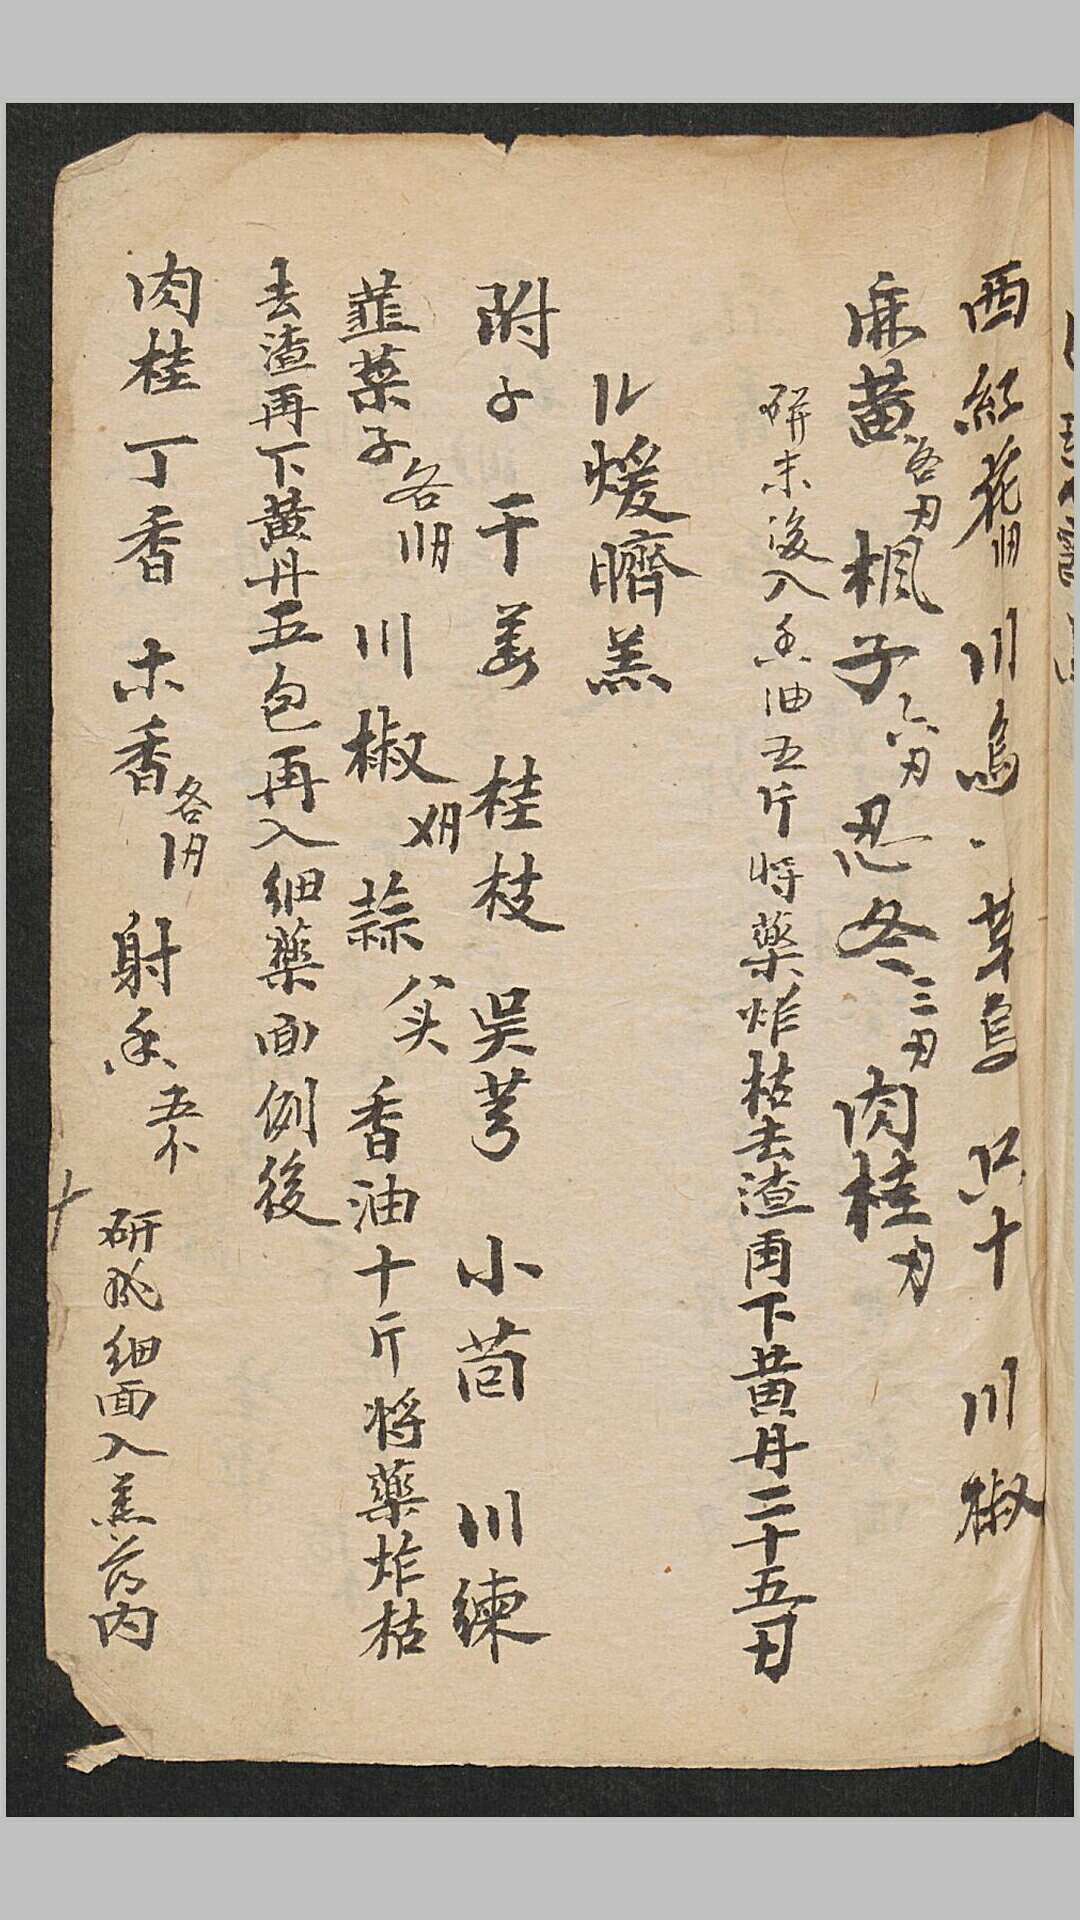 西紅花 川烏 草烏 只十 川椒
麻黃各刃 楓子六刃 忍冬三刃 肉桂刃
研末後入香油五斤將藥炸枯去渣再下黃丹二十五刃
煖臍羔
附子 干姜 桂枝 吳芎 小茴 川練
韮菜子各 川椒 蒜八头 香油十斤將藥炸枯
去渣再下黃丹五包再入細藥面例後
肉桂 丁香 木香各 射香五个 研成細面入羔药內